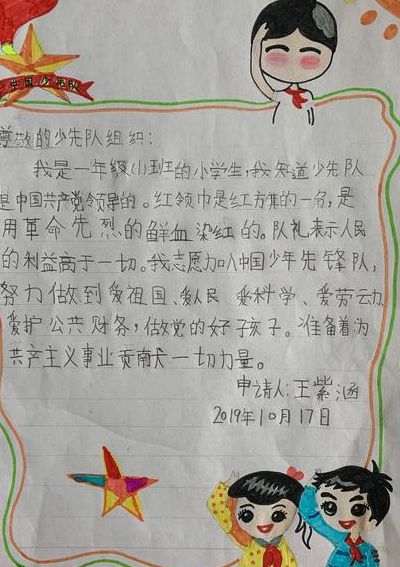 中国少先队
尊敬的少先队组织：
我是一年级(1)班的小学生，我知道少先队
是中国共产党领导的。红领巾是红方旗的一角，是
用革命先烈的鲜血染红的。队礼表示人民
的利益高于一切。我志愿加入中国少年先锋队，
努力做到爱祖国、爱人民、爱科学、爱劳动、
爱护公共财务，做党的好孩子。准备着为
共产主义事业贡献一切力量。
申请人：王紫涵
2019年10月17日